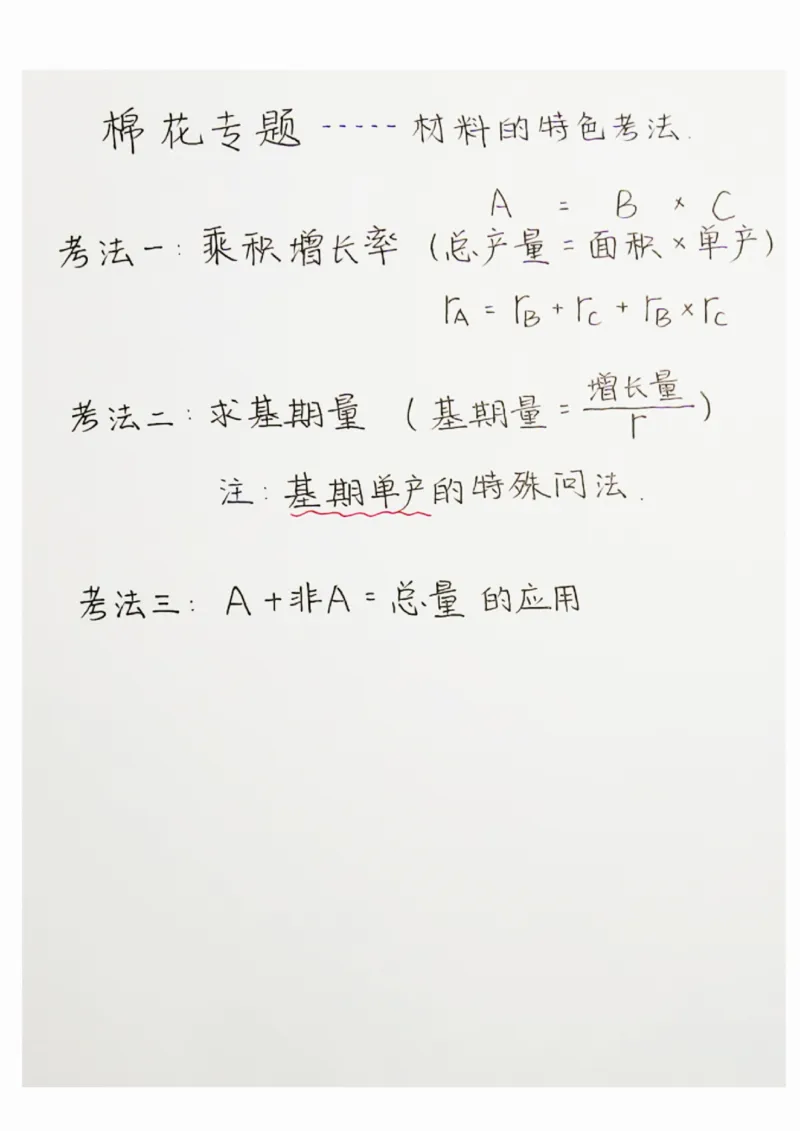 棉花专题-----材料的特色考法.
A = B × C
考法一：乘积增长率（总产量=面积×单产）
r_A = r_B + r_C + r_B × r_C
考法二：求基期量（基期量=增长量/r）
注：基期单产的特殊问法.
考法三：A+非A=总量 的应用